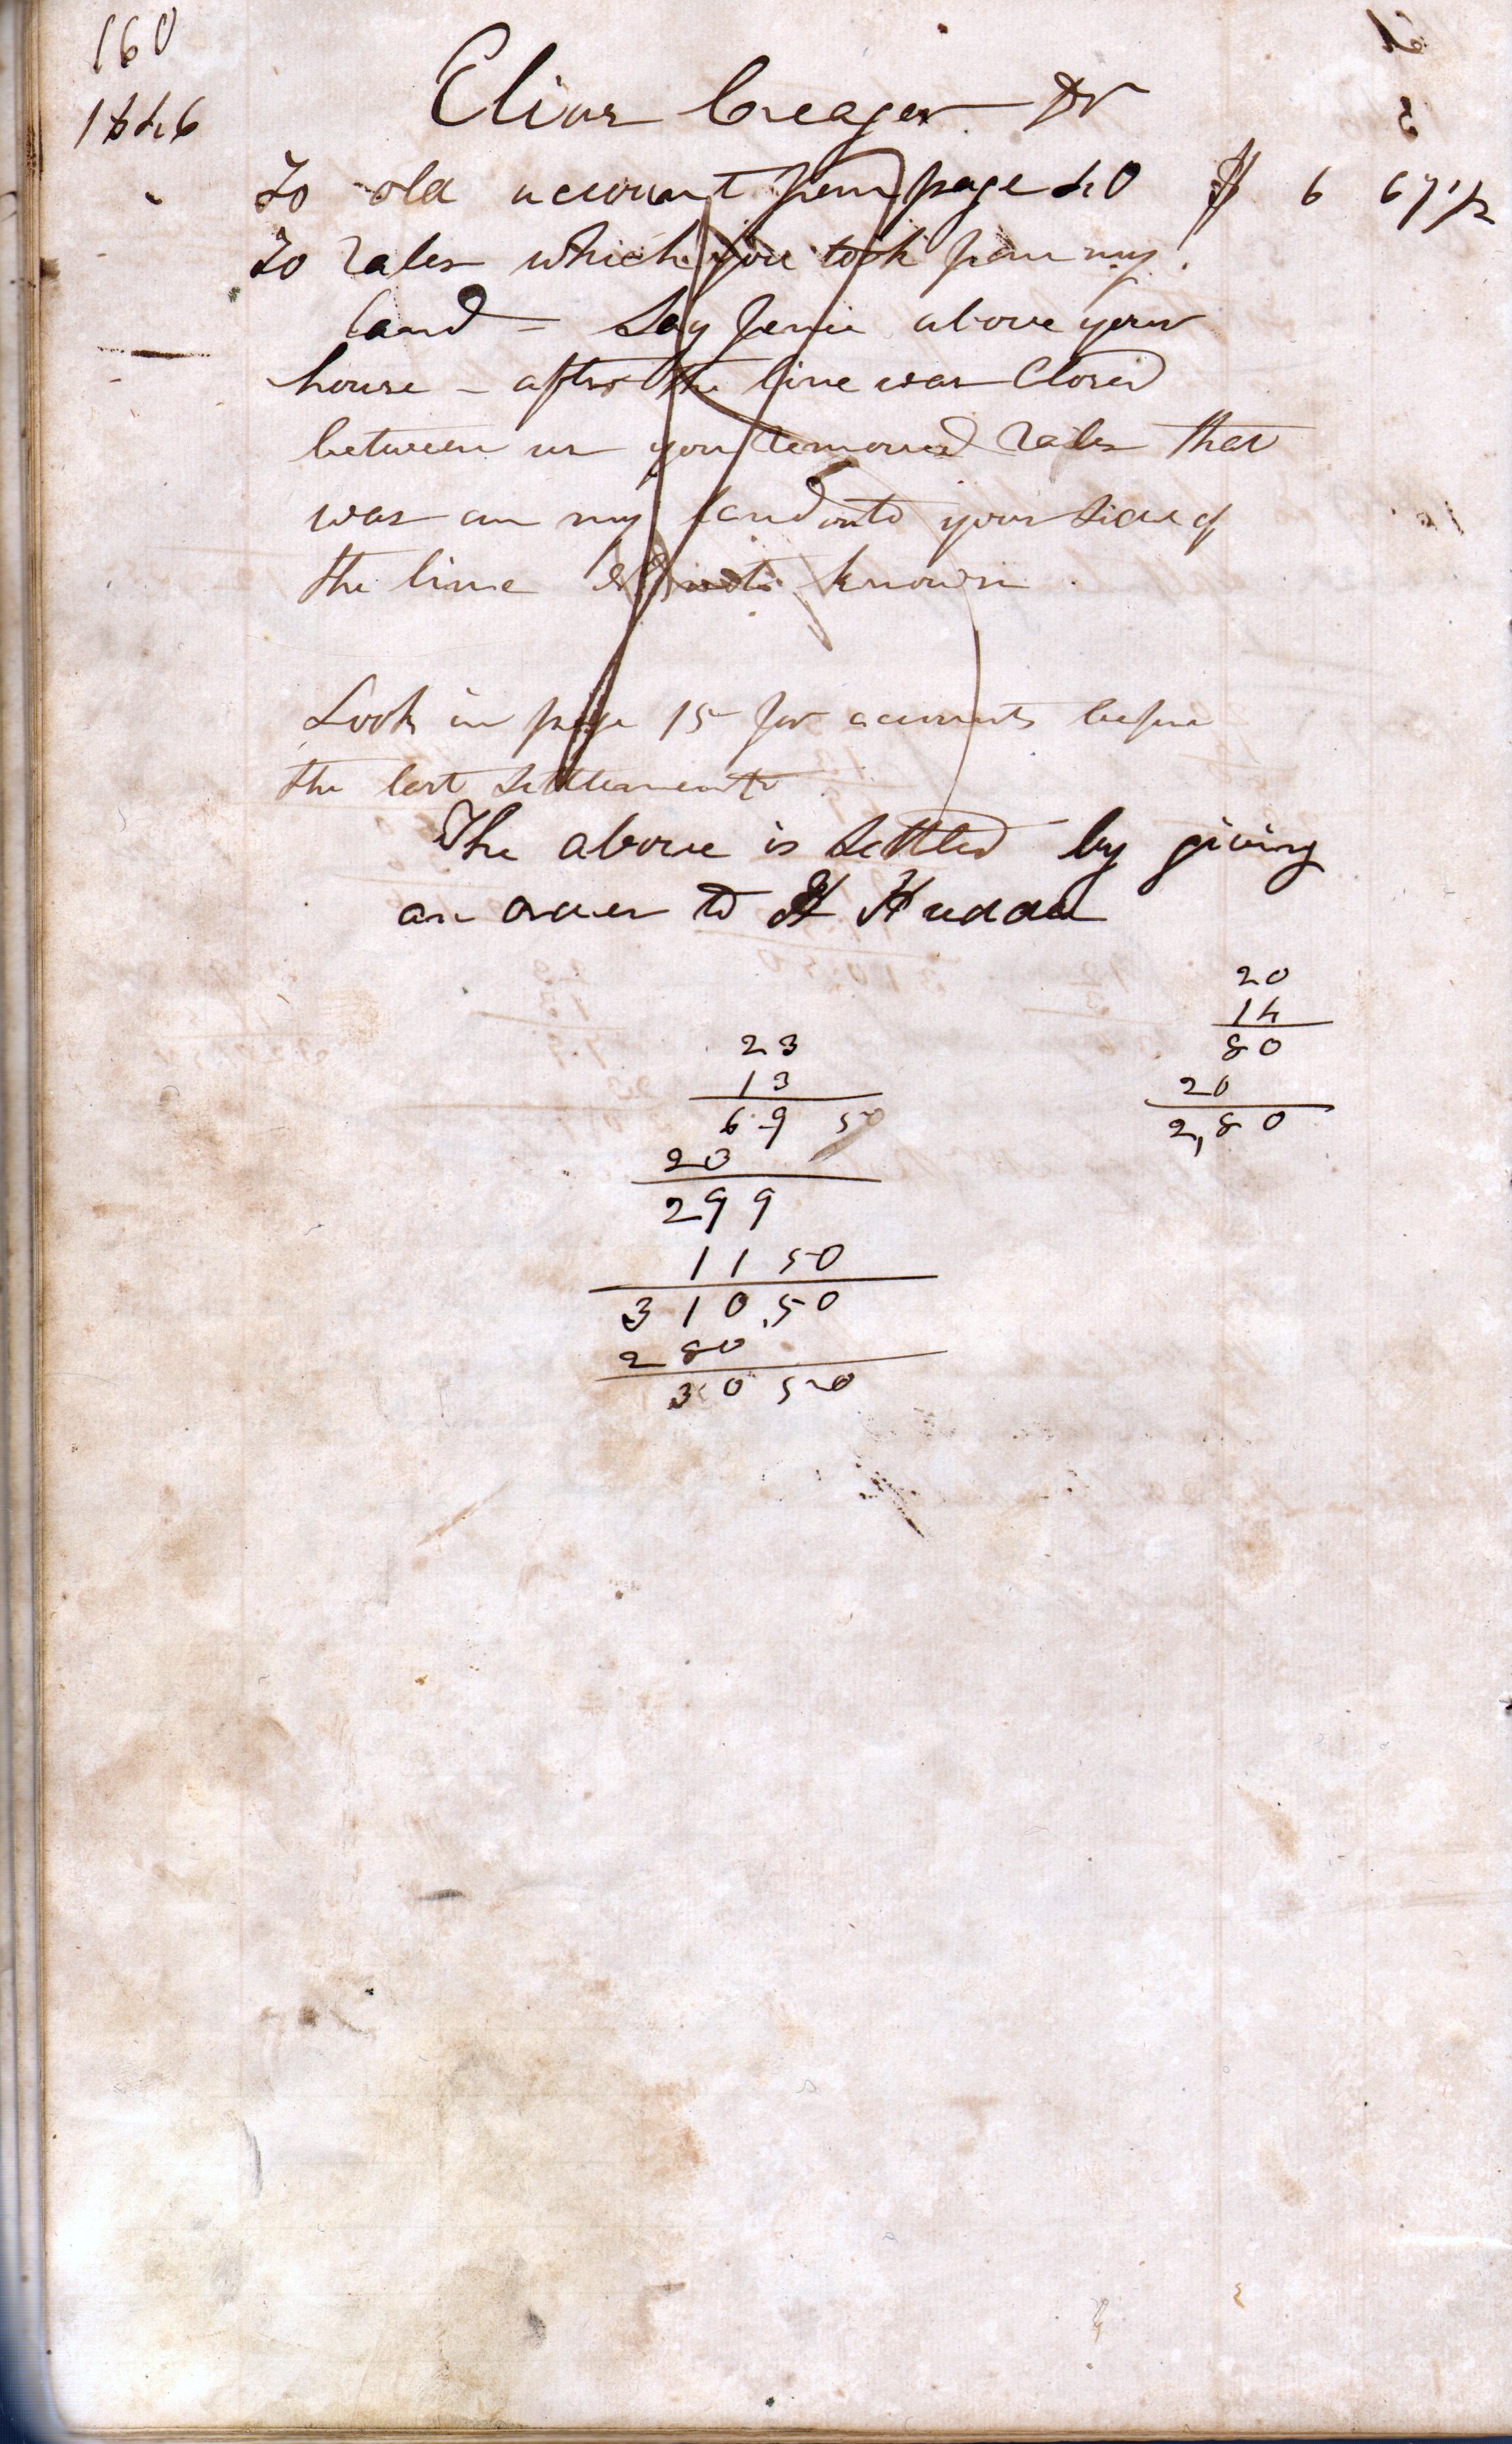 160
1846
Elias Creager Dr
To old account from page 40 $ 6 67 1/2
To rales which you took from my
land - Say fence above your
house - after the line was Closed
between us you removed rales that
was on my land onto your Side of
the line not known
Look in page 15 for accounts before
the last Settlements
The above is Settled by giving
an order to H
20
14
80
20
2,80
23
13
69 50
23
299
11 50
310.50
280
30 50